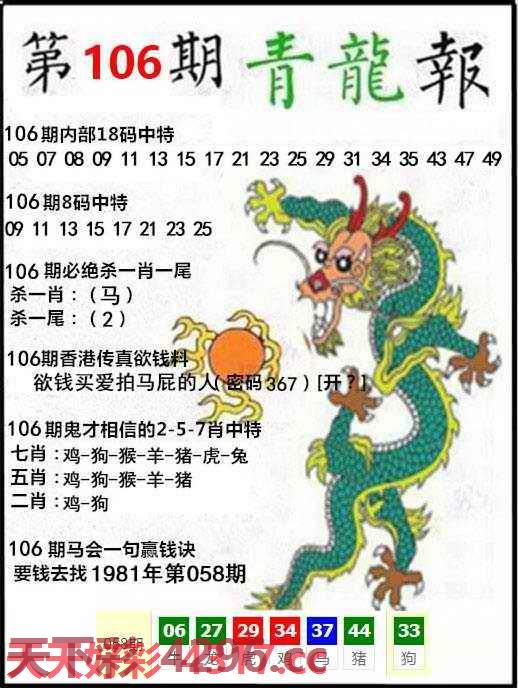 第106期 青龍報
106期内部18码中特
05 07 08 09 11 13 15 17 21 23 25 29 31 34 35 43 47 49
106期8码中特
09 11 13 15 17 21 23 25
106期必绝杀一肖一尾
杀一肖：（马）
杀一尾：（2）
106期香港传真欲钱料
欲钱买爱拍马屁的人（密码367）[开？]
106期鬼才相信的2-5-7肖中特
七肖：鸡-狗-猴-羊-猪-虎-兔
五肖：鸡-狗-猴-羊-猪
二肖：鸡-狗
106期马会一句赢钱诀
要钱去找1981年第058期
058期 06 27 29 34 37 44 33
牛 龙 虎 鸡 马 猪 狗
天下好彩4296.cc